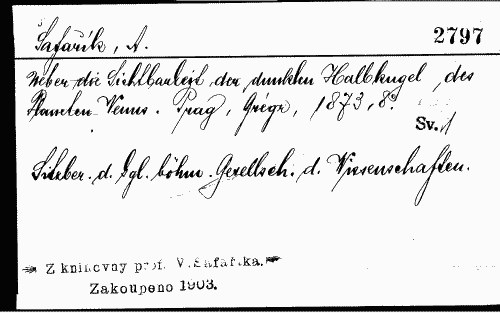 Šafařík, A. 2797
Ueber die Sichtbarkeit der dunklen Halbkugel des
Planeten Venus. Prag, Grégr, 1873, 8°.
Sv. 1
Sitzber. d. kgl. böhm. Gesellsch. d. Wissenschaften.
Z knihovny prof. V. Šafaříka.
Zakoupeno 1903.